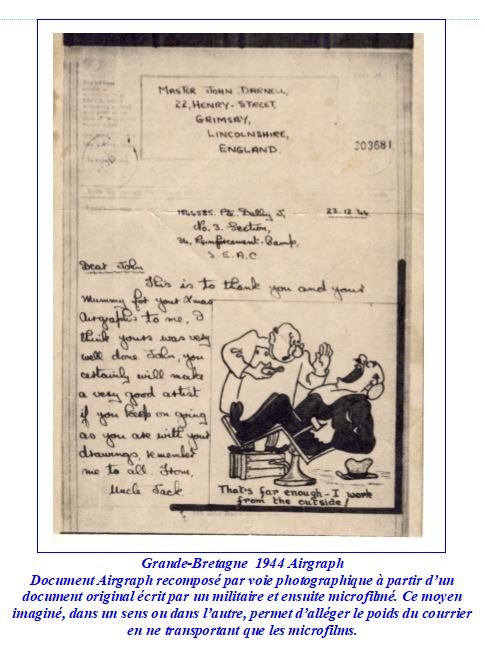 MASTER JOHN DARNELL,
22, HENRY-STREET,
GRIMSBY,
LINCOLNSHIRE,
ENGLAND.
203681
Pte. Dalby J,
23.12.44
No. 3. Section,
34, Reinforcement-Camp,
S.E.A.C.
Dear John
This is to thank you and your
Mummy for your Xmas
Airgraphs to me, I
think yours was very
well done John, you
certainly will make
a very good artist
if you keep on going
as you are with your
drawings, remember
me to all. From,
Uncle Jack.
That's far enough - I work
from the outside!
Grande-Bretagne 1944 Airgraph
Document Airgraph recomposé par voie photographique à partir d'un
document original écrit par un militaire et ensuite microfilmé. Ce moyen
imaginé, dans un sens ou dans l'autre, permet d'alléger le poids du courrier
en ne transportant que les microfilms.